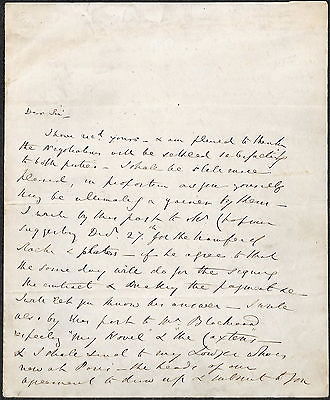 Dear Sir
I have recd. yours – & am pleased to think
the negotiations will be settled satisfactorily
to both parties – I shall be still more
pleased, in proportion as you yourself
may be ultimately a gainer by them –
I write by this post to Mr Chapman
suggesting Decr 27th for the transfer of
stock & plates – if he agree to that
the same day will do for the signing
the contract & making the payment &
I will let you know his answer – I write
also by this post to Mr Blackwood
respectg "My Novel" & the Caxtons –
& I shall send to my Lawyer who is
now at Paris – the heads of our
agreement to draw up & submit to you